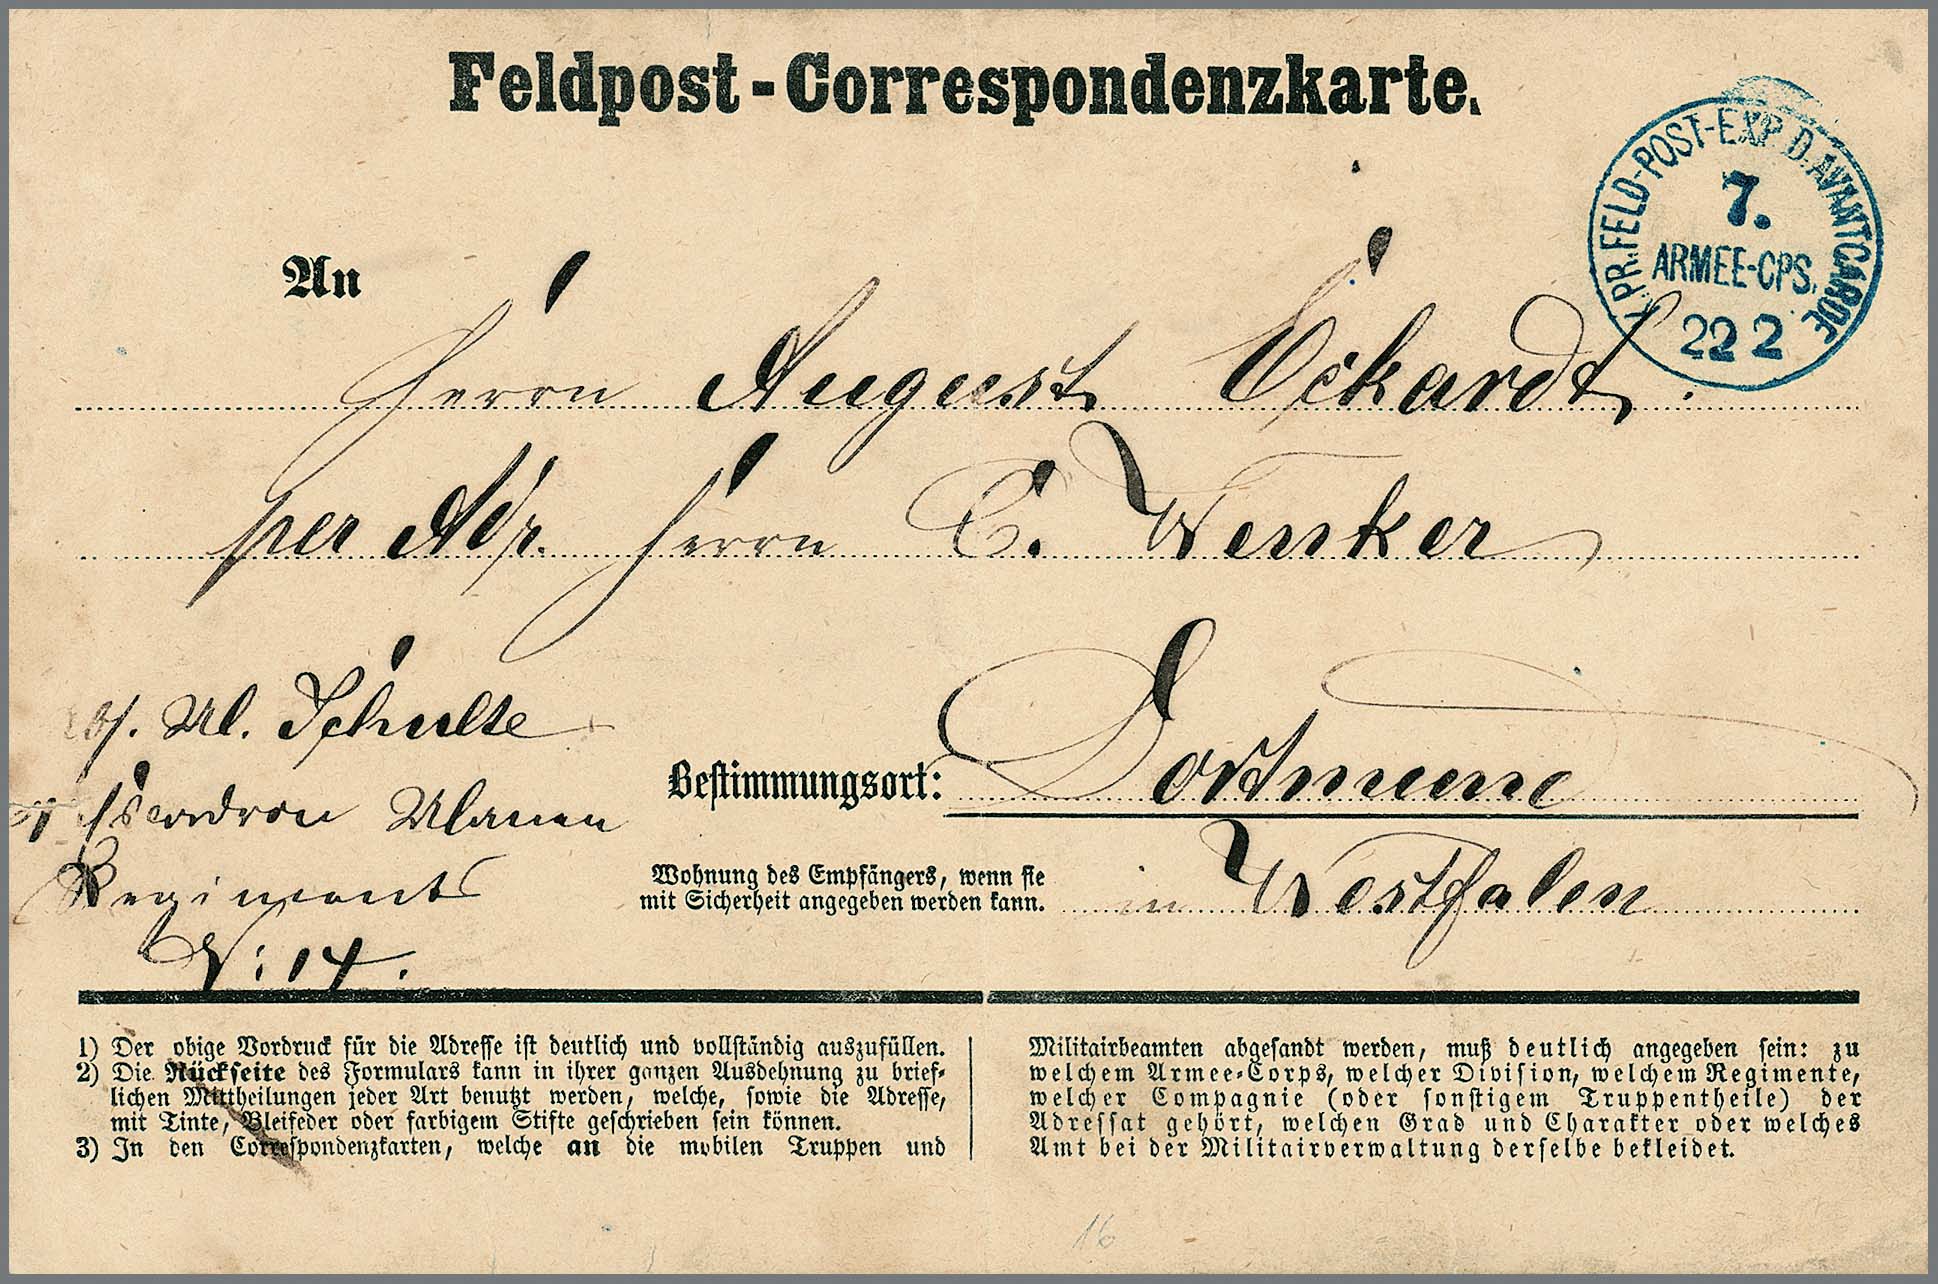 Feldpost-Correspondenzkarte.
K.PR.FELD-POST-EXP. D.AVANTGARDE
7.
ARMEE-CPS.
22 2
An
Herrn August Eckardt.
per Adr. Herrn C. Wenker
Ul. Schulte
Escadron Ulanen
Regiments
N: 14.
Bestimmungsort: Dortmund
Wohnung des Empfängers, wenn sie
mit Sicherheit angegeben werden kann. in Westfalen
1) Der obige Vordruck für die Adresse ist deutlich und vollständig auszufüllen.
2) Die Rückseite des Formulars kann in ihrer ganzen Ausdehnung zu brief-
lichen Mittheilungen jeder Art benutzt werden, welche, sowie die Adresse,
mit Tinte, Bleifeder oder farbigem Stifte geschrieben sein können.
3) In den Correspondenzkarten, welche an die mobilen Truppen und
Militairbeamten abgesandt werden, muß deutlich angegeben sein: zu
welchem Armee-Corps, welcher Division, welchem Regimente,
welcher Compagnie (oder sonstigem Truppentheile) der
Adressat gehört, welchen Grad und Charakter oder welches
Amt bei der Militairverwaltung derselbe bekleidet.
16